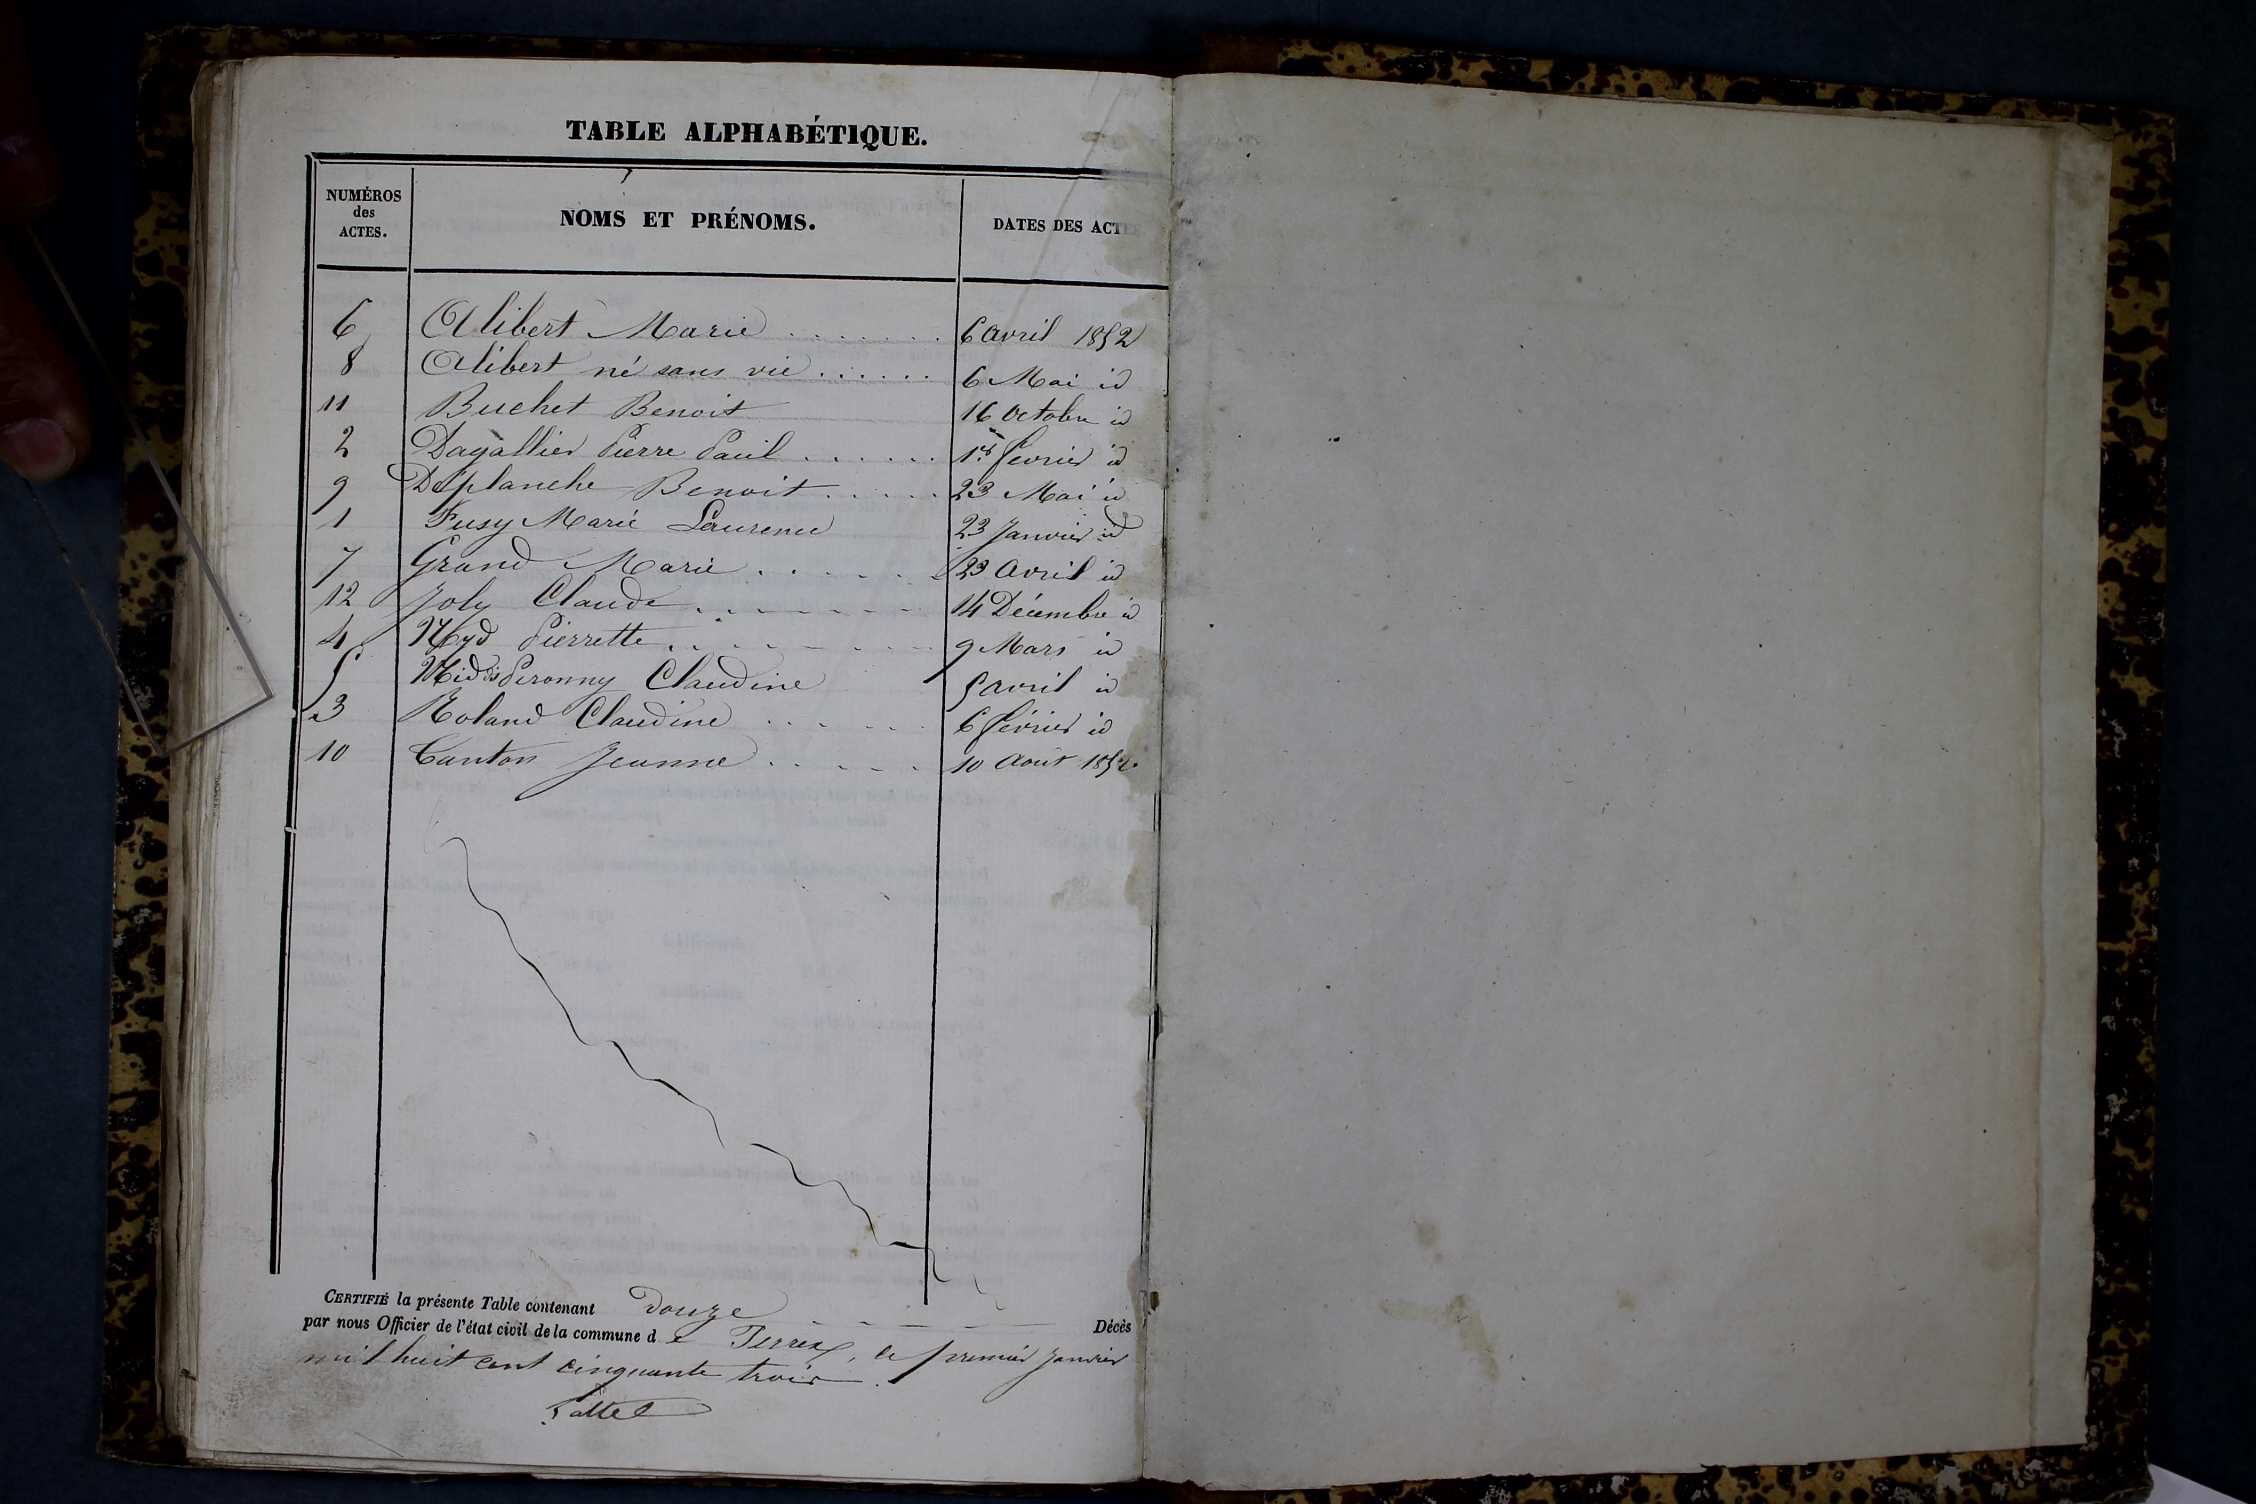 TABLE ALPHABÉTIQUE.
NUMÉROS des ACTES. NOMS ET PRÉNOMS. DATES DES ACTE
6 Alibert Marie . . . . . . . 6 avril 1852
8 Alibert né sans vie . . . . . . 6 Mai id
11 Buchet Benoit 16 octobre id
2 Dagallier Pierre Paul . . . . . . 1er février id
9 Deplanche Benoit . . . . . 23 Mai id
1 Fusy Marie Laurence 23 Janvier id
7 Grand Marie . . . . . . 23 avril id
12 Joly Claude . . . . . . . 14 Décembre id
4 Myd Pierrette . . . . . . . 9 Mars id
5 Mid dit Peronny Claudine 5 avril id
3 Roland Claudine . . . . . . 6 février id
10 Canton Jeanne . . . . . 10 Août 1852.
CERTIFIÉ la présente Table contenant douze Décès
par nous Officier de l'état civil de la commune de Perrex, le premier janvier
mil huit cent cinquante trois.